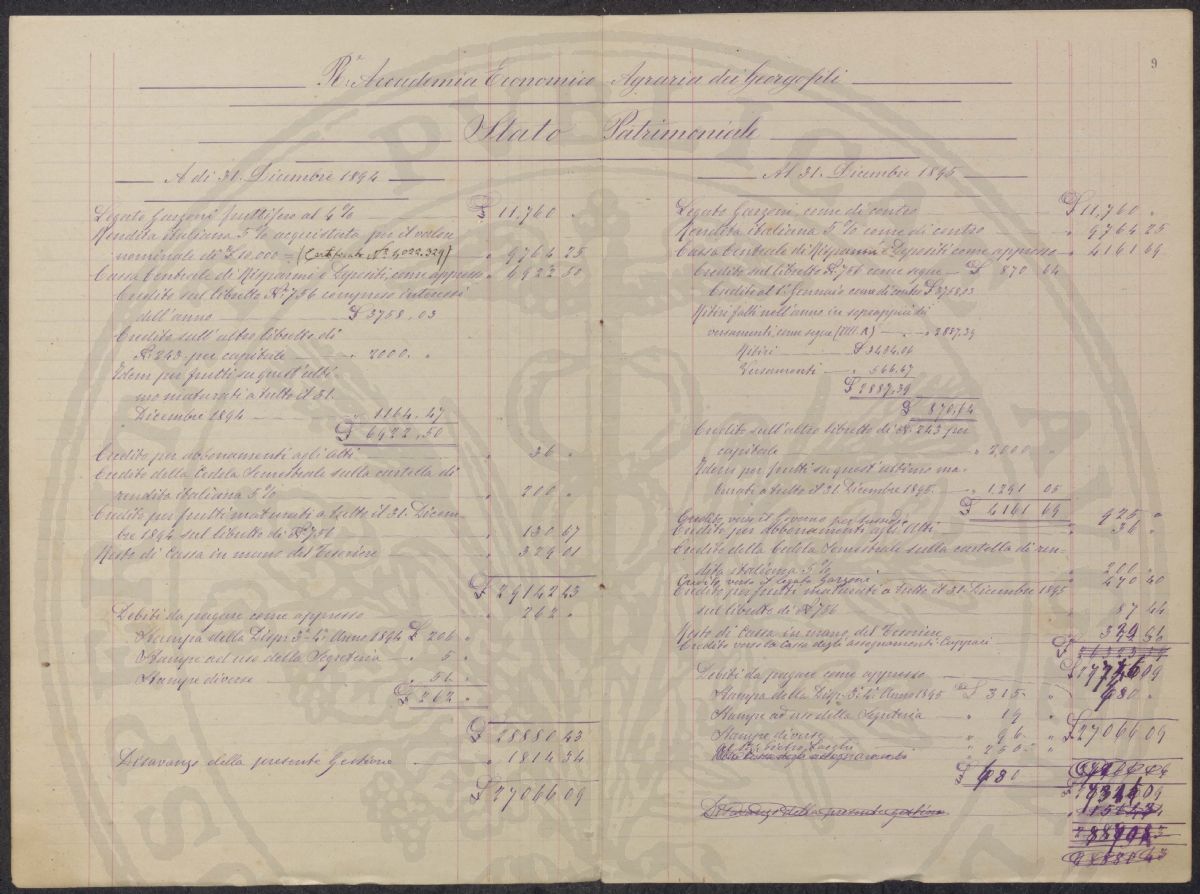 9
R.ª Accademia Economico Agraria dei Georgofili
Stato Patrimoniale
A dì 31. Dicembre 1894
Legato Garzoni fruttifero al 4% £ 11.760 "
Rendita italiana 5% acquistata per il valore
nominale di £ 10.000 = (Certificato N.º 4022.329) " 9764 25
Cassa Centrale di Risparmi e Depositi, come appresso " 6922 50
Credito sul libretto N. 756 compreso interessi
dell'anno £ 3758.03
Credito sull'altro libretto di
N. 243. per capitale " 2000. "
Idem per frutti su quest'ulti-
mo maturati a tutto il 31.
Dicembre 1894 " 1164.47
£ 6922.50
Credito per abbonamenti agli atti " 36 "
Credito della Cedola Semestrale sulla cartella di
rendita italiana 5% " 200 "
Credito per frutti maturati a tutto il 31. Dicem-
bre 1894 sul libretto di N. 756 " 130 67
Resto di Cassa in mano del Tesoriere " 329 01
£ 29142 43
Debiti da pagare come appresso " 262 "
Stampa della Disp. 3ª 4ª Anno 1894 £ 206 "
Stampe ad uso della Segreteria " 5 "
Stampe diverse " 51 "
£ 262 "
£ 28880 43
Disavanzo della presente Gestione " 1814 34
£ 27066 09
Al 31. Dicembre 1895
Legato Garzoni, come di contro £ 11.760 "
Rendita italiana 5% come di contro " 9764 25
Cassa Centrale di Risparmi e Depositi come appresso " 4161 69
Credito sul libretto N. 756 come segue £ 870 64
Credito al 1º Gennaio come di contro £ 3758.03
Ritiri fatti nell'anno in soprappiù di
versamenti, come segue " 2887.39
Ritiri £ 3454.06
Versamenti " 566.67
£ 2887.39
£ 870.64
Credito sull'altro libretto di N. 243 per
capitale " 2000 "
Idem per frutti su quest'ultimo ma-
turati a tutto il 31. Dicembre 1895. " 1291 05
£ 4161 69
Credito verso il Governo per sussidio " 925 "
Credito per abbonamenti agli Atti " 36 "
Credito della Cedola Semestrale sulla cartella di ren-
dita italiana 5% " 200 "
Credito verso il legato Garzoni " 470 40
Credito per frutti maturati a tutto il 31. Dicembre 1895
sul libretto di N. 756 " 87 44
Resto di Cassa in mano del Tesoriere
Credito verso la Cassa degli assegnamenti Cuppari
Debiti da pagare come appresso " 680 "
Stampa della Disp. 3ª 4ª Anno 1895 £ 315 "
Stampe ad uso della Segreteria " 19 "
Stampe diverse " 96 "
£ 27066 09
" 250 "
£ 680
Disavanzo della presente gestione
28880 43